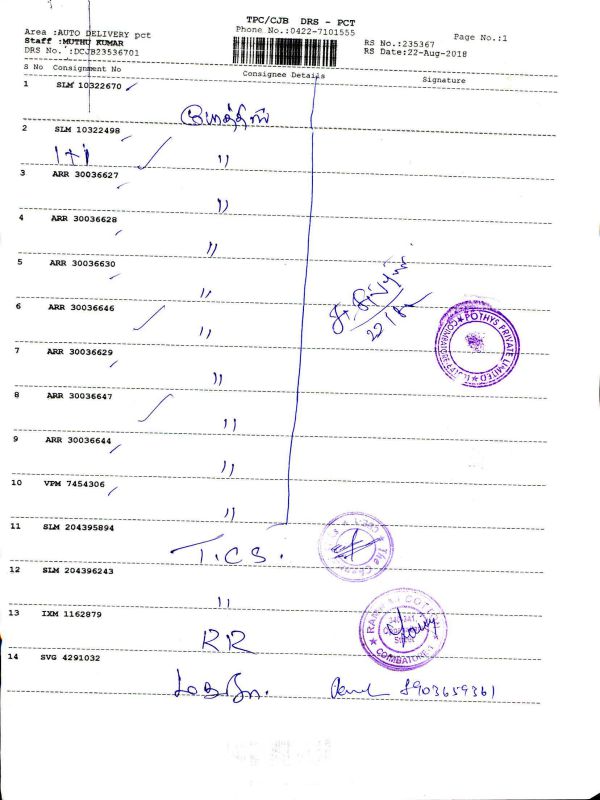 TPC/CJB DRS - PCT
Area :AUTO DELIVERY pct
Phone No.:0422-7101555
Page No.:1
Staff :MUTHU KUMAR
RS No.:235367
DRS No. :DCJB23536701
RS Date:22-Aug-2018
S No Consignment No Consignee Details Signature
1 SLM 10322670
போத்தீஸ்
2 SLM 10322498
1+1 "
3 ARR 30036627
"
4 ARR 30036628
"
5 ARR 30036630
"
6 ARR 30036646
"
22/8
POTHYS PRIVATE LIMITED
COIMBATORE
7 ARR 30036629
"
8 ARR 30036647
"
9 ARR 30036644
"
10 VPM 7454306
"
11 SLM 204395894
T.C.S.
12 SLM 204396243
"
13 IXM 1162879
RR
COIMBATORE
14 SVG 4291032
8903659361